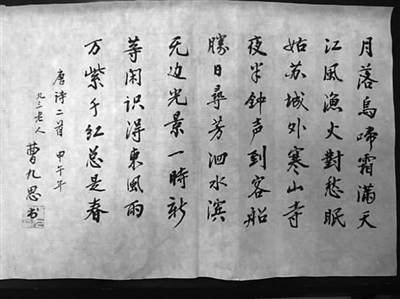 月落烏啼霜滿天
江風漁火對愁眠
姑苏城外寒山寺
夜半钟声到客船
勝日尋芳泗水滨
无边光景一時新
等闲识得東風雨
万紫千红总是春
唐诗二首 甲午年
九三老人 曹九思书